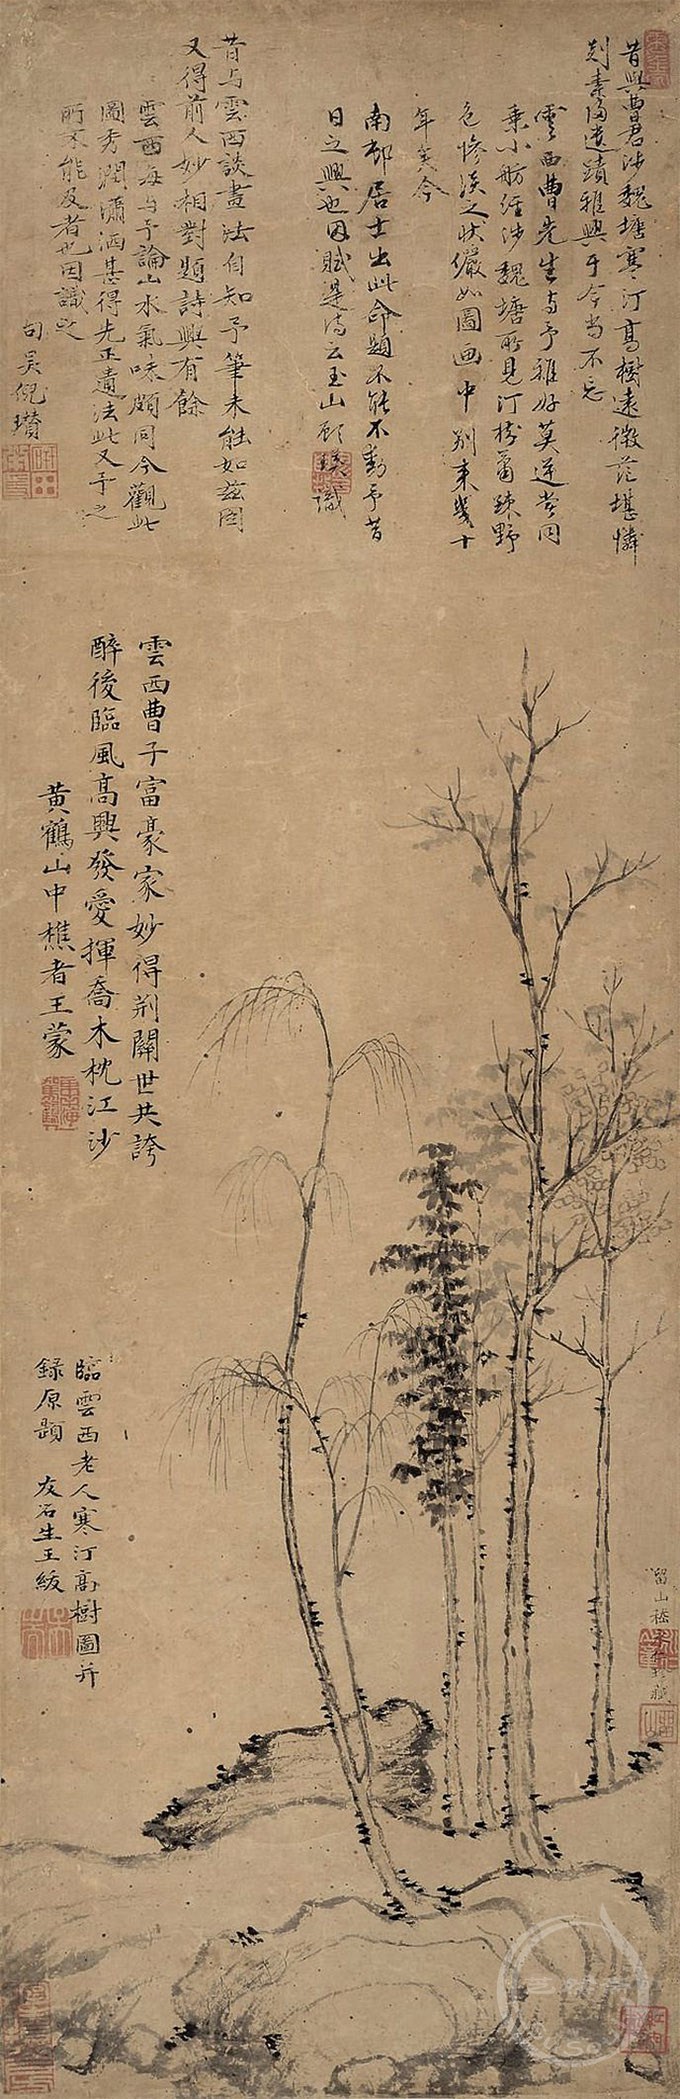 昔與曹君涉魏塘寒汀高樹遠微茫堪憐
剡素留遺蹟雅興于今尚不忘
雲西曹先生與予雅好莫逆嘗同
乘小舫經涉魏塘所見汀樹蕭疎野
色慘淡之狀儼如圖画中別来幾十
年矣今
南邨居士出此命題不能不動予昔
日之興也因賦是詩云玉山顧瑛識
昔与雲西談畫法自知予筆未能如茲圖
又得前人妙相對題詩興有餘
雲西每与予論山水氣味頗同今觀此
圖秀潤瀟洒甚得先正遺法此又予之
所不能及者也因識之
句吴倪瓚
雲西曹子富豪家妙得荆關世共誇
醉後臨風高興發愛揮喬木枕江沙
黄鶴山中樵者王蒙
臨雲西老人寒汀高樹圖并
録原題 友石生王紱